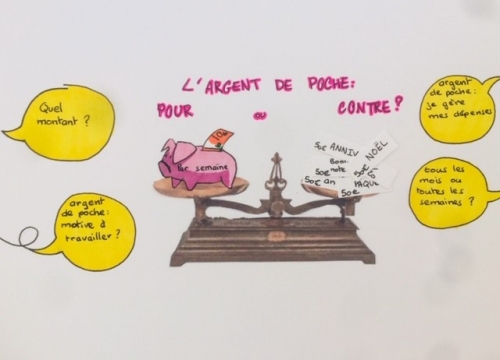 L'ARGENT DE POCHE:
POUR ou CONTRE?
Quel
montant ?
argent
de poche:
motive à
travailler ?
argent
de poche:
je gère
mes dépenses
tous les
mois ou
toutes les
semaines ?
par semaine
50€ ANNIV
NOËL
Bonne
note
50€
50€ an
50€
PAQUES
50€